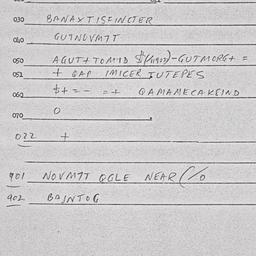 030 BANAXTISFINCTER
040 GUTNUVM7T
050 AGUT+TOMID -GUTMORG+ =
051 + GAP IMICER IUTEPES
060 $+=- =+ QAMAMECAKEIND
070 0
022 +
901 NOVM7T QGLE NEAR (%
902 BAJNTOG